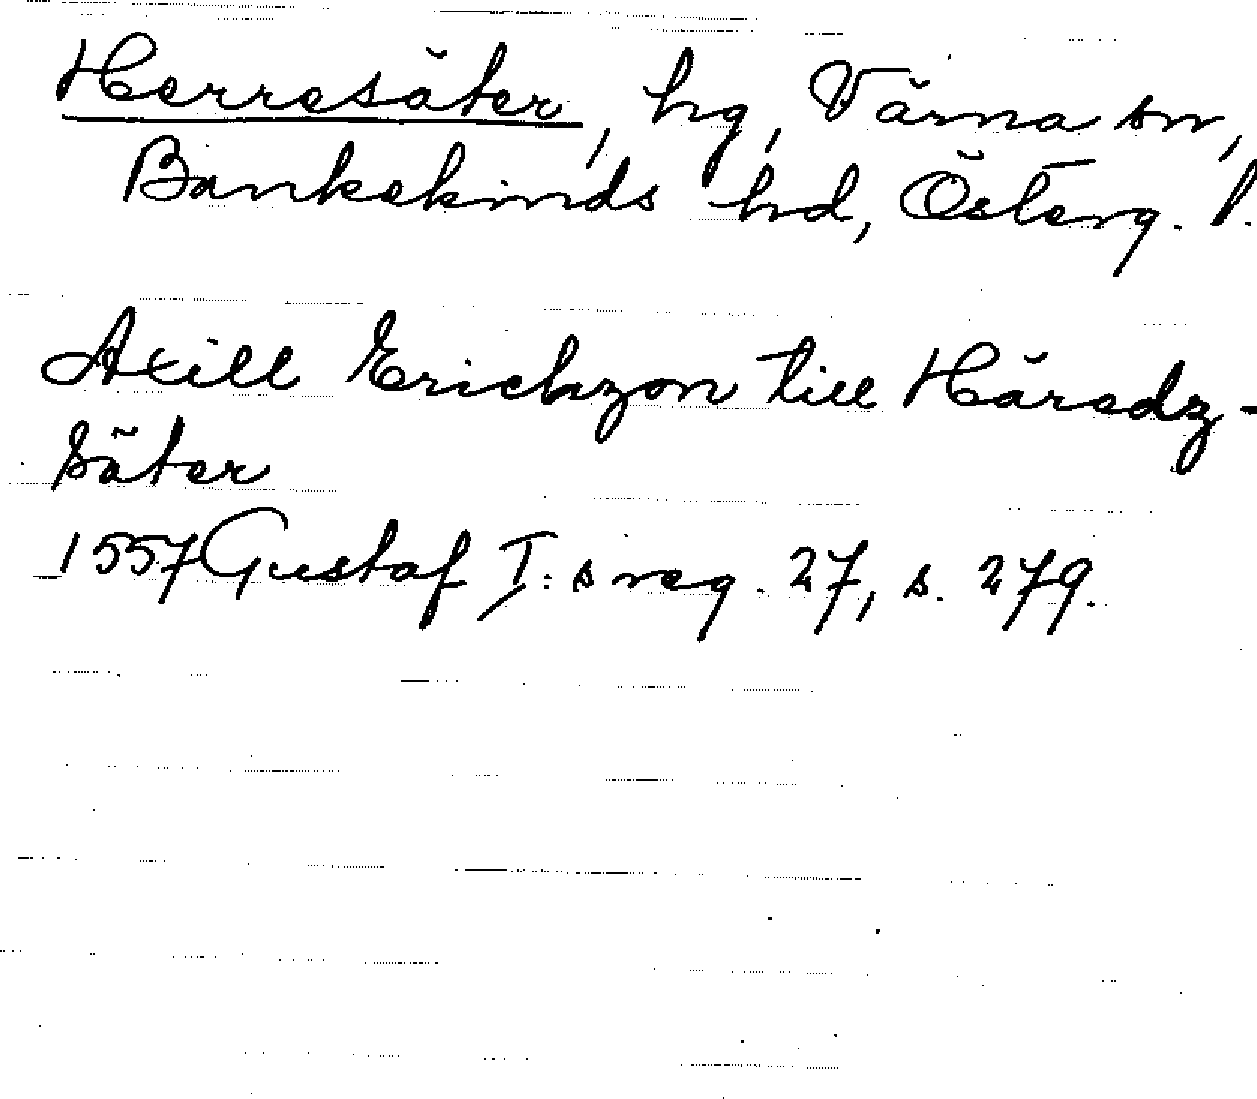 Herresäter, hg, Värna sn,
Bankekinds hd, Österg. l.
Axill Erichzon till Häredz-
säter
1557 Gustaf I:s reg. 27, s. 279.